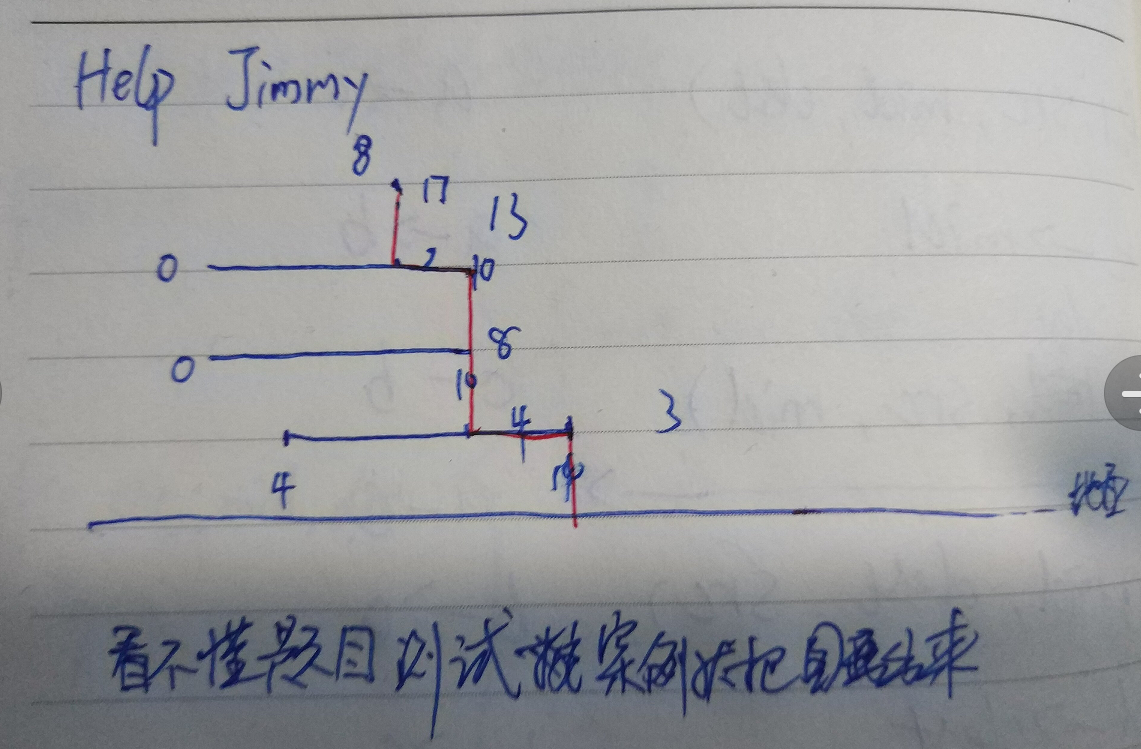 Help Jimmy
8
17
13
0
2
10
0
8
10
4
3
4
14
地面
看不懂题目测试数案例就把图画出来